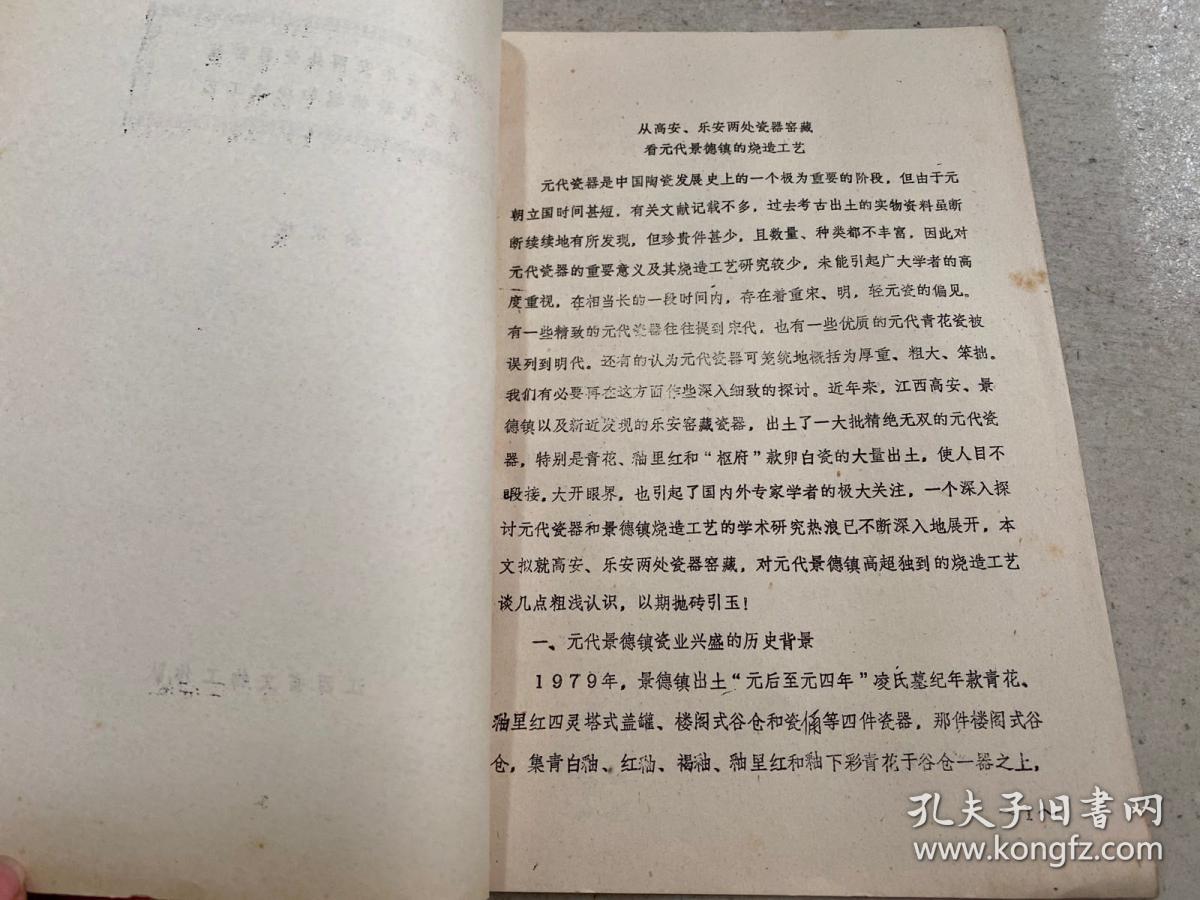 从高安、乐安两处瓷器窑藏
看元代景德镇的烧造工艺
元代瓷器是中国陶瓷发展史上的一个极为重要的阶段，但由于元
朝立国时间甚短，有关文献记载不多，过去考古出土的实物资料虽断
断续续地有所发现，但珍贵件甚少，且数量、种类都不丰富，因此对
元代瓷器的重要意义及其烧造工艺研究较少，未能引起广大学者的高
度重视，在相当长的一段时间内，存在着重宋、明，轻元瓷的偏见。
有一些精致的元代瓷器往往提到宋代，也有一些优质的元代青花瓷被
误列到明代。还有的认为元代瓷器可笼统地概括为厚重、粗大、笨拙。
我们有必要再在这方面作些深入细致的探讨。近年来，江西高安、景
德镇以及新近发现的乐安窑藏瓷器，出土了一大批精绝无双的元代瓷
器，特别是青花、釉里红和“枢府”款卵白瓷的大量出土，使人目不
暇接，大开眼界，也引起了国内外专家学者的极大关注，一个深入探
讨元代瓷器和景德镇烧造工艺的学术研究热浪已不断深入地展开，本
文拟就高安、乐安两处瓷器窑藏，对元代景德镇高超独到的烧造工艺
谈几点粗浅认识，以期抛砖引玉！
一、元代景德镇瓷业兴盛的历史背景
1979年，景德镇出土“元后至元四年”凌氏墓纪年款青花、
釉里红四灵塔式盖罐、楼阁式谷仓和瓷俑等四件瓷器，那件楼阁式谷
仓，集青白釉、红釉、褐釉、釉里红和釉下彩青花于谷仓一器之上，
1
孔夫子旧书网
www.kongfz.com